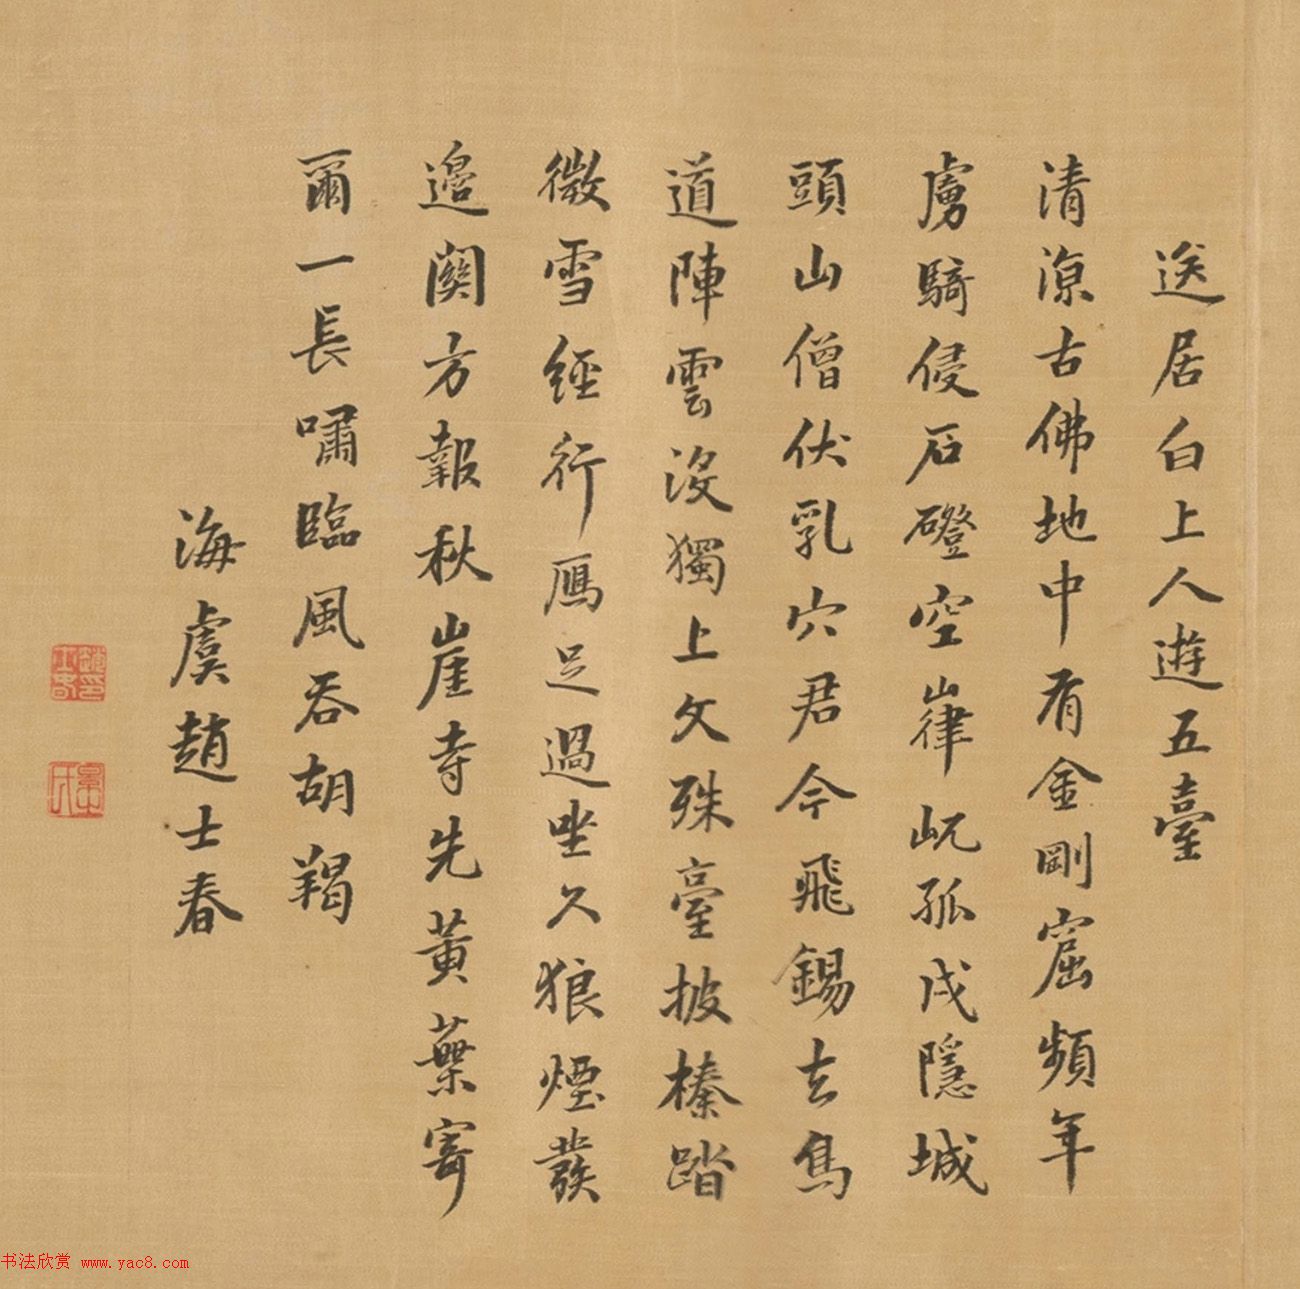 送居白上人遊五臺
清涼古佛地中有金剛窟頻年
虜騎侵石磴空嵂屼孤戍隱城
頭山僧伏乳穴君今飛錫去鳥
道陣雲沒獨上文殊臺披榛踏
微雪經行鴈足過坐久狼煙發
邉關方報秋崖寺先黃葉寄
爾一長嘯臨風吞胡羯
海虞趙士春
书法欣赏 www.yac8.com